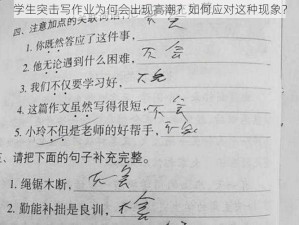 学生突击写作业为何会出现高潮？如何应对这种现象？
四、注意加点的关联词语
1. 你既然答应了这件事，不会
2. 他无论遇到什么困难，不会
3. 我们不仅要学习好，不会
4. 这篇作文虽然写得很短，不会
5. 小玲不但是老师的好帮手，不会
、请把下面的句子补充完整。
1. 绳锯木断，不会
2. 勤能补拙是良训，不会